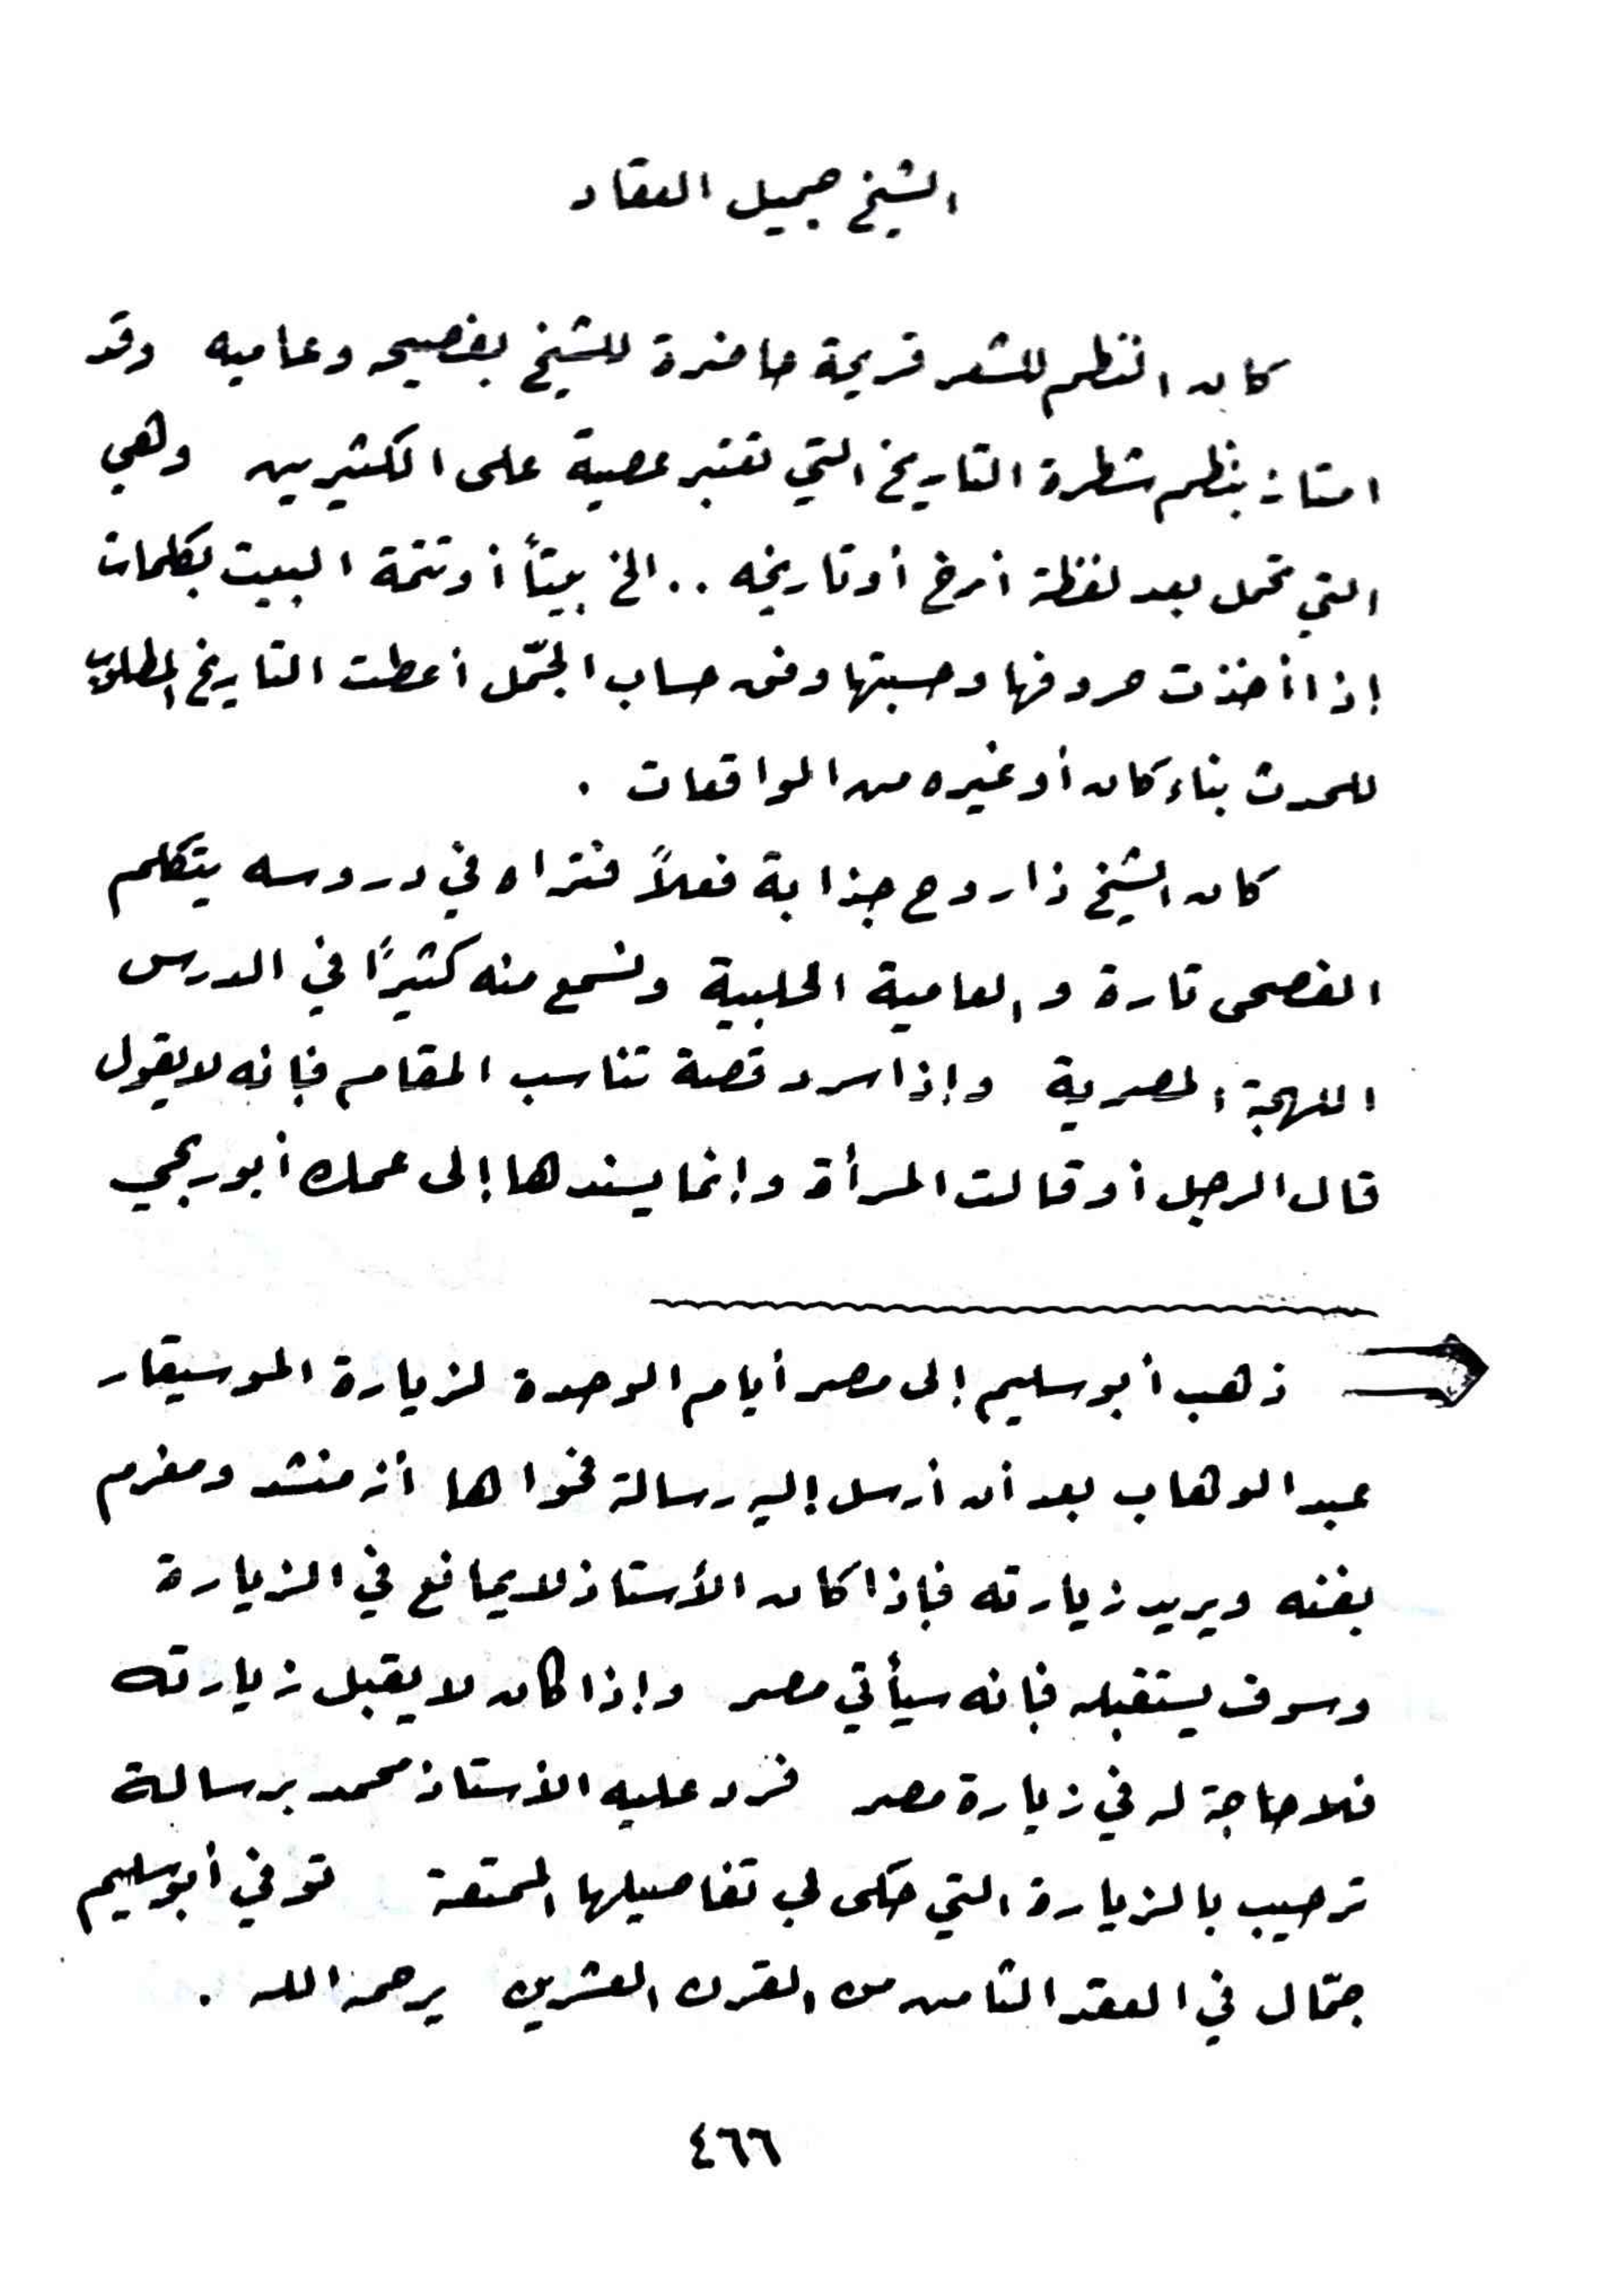 الشيخ جميل العقاد
كان النظم للشعر قريحة حاضرة للشيخ بفصيحه وعاميه وقد
امتاز بنظم شطرة التاريخ التي تعتبر عصية على الكثيرين وهي
التي تحمل بعد لفظة أرخ أو تاريخه .. الخ بيتاً أو تتمة البيت بكلمات
إذا أخذت حروفها وحسبتها وفق حساب الجمّل أعطت التاريخ المطلوب
للحدث بناء كان أو غيره من الواقعات .
كان الشيخ ذا روح جذابة فعلاً فتراه في دروسه يتكلم
الفصحى تارة والعامية الحلبية ونسمع منه كثيراً في الدرس
اللهجة المصرية وإذا سرد قصة تناسب المقام فإنه لا يقول
قال الرجل أو قالت المرأة وإنما يسندها إلى عمك أبو رجي
ذهب أبو سليم إلى مصر أيام الوحدة لزيارة الموسيقار
عبد الوهاب بعد أن أرسل إليه رسالة فحواها أنه منشد ومغرم
بفنه ويريد زيارته فإذا كان الأستاذ لا يمانع في الزيارة
وسوف يستقبله فإنه سيأتي مصر وإذا كان لا يقبل زيارته
فلا حاجة له في زيارة مصر فرد عليه الأستاذ محمد برسالة
ترحيب بالزيارة التي حكى لي تفاصيلها الممتعة توفي أبو سليم
جمّال في العقد الثامن من القرن العشرين يرحمه الله .
٤٦٦